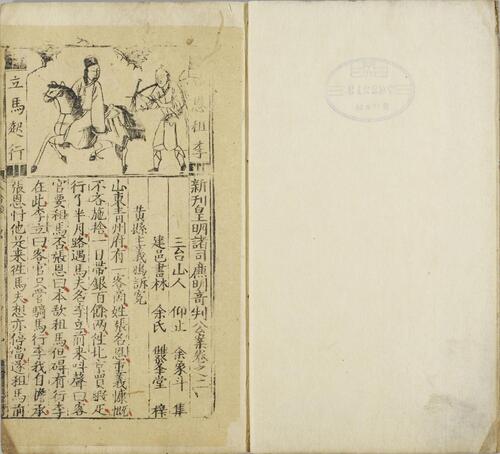 恩租李
立馬起行
新刊皇明諸司廉明奇判公案卷之二
三台山人 仰止 余象斗 集
建邑書林 余氏 雙峯堂 梓
黄縣主義鴉訴寃
山東青州府有一客商姓張名恩重義慷慨
不吝施捨一日帶銀百餘兩往北京買叚疋
行了半月路遇馬夫名李立前來呌聲曰客
官要租馬否張恩曰本欲租馬但碍有行李
在此李立曰客官只管騎馬行李我自擔承
張恩忖他是来徃馬夫想亦停當遂租馬前